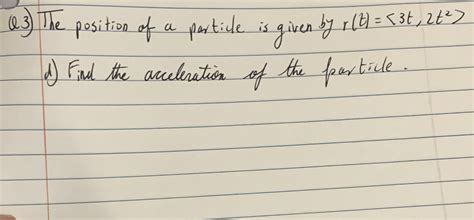 Q.3) The position of a particle is given by r(t) = <3t, 2t²>
d) Find the acceleration of the particle.